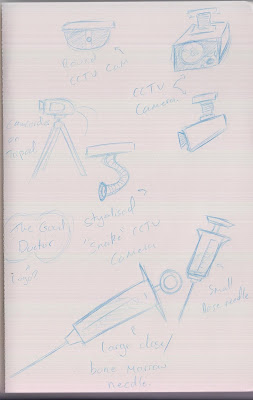 Round
CCTV Cam
CCTV
Camera
Camcorder
on Tripod
Stylised
"Snake" CCTV
Camera
The Goat
Doctor
Logo?
Small
Dose needle
Large dose/
bone marrow
needle.